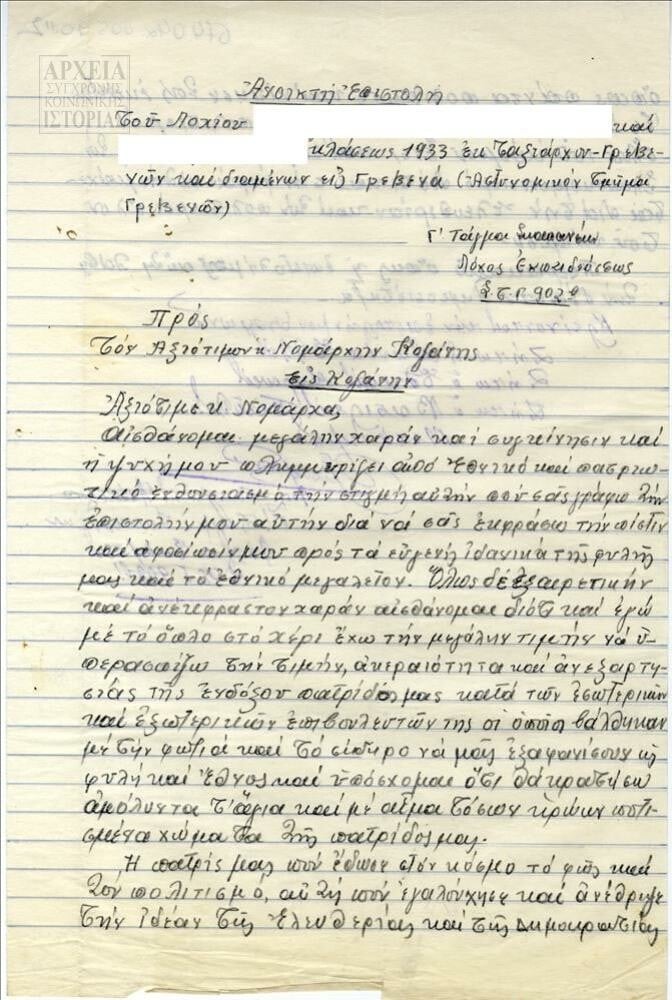 ΑΡΧΕΙΑ
ΣΥΓΧΡΟΝΗΣ
ΚΟΙΝΩΝΙΚΗΣ
ΙΣΤΟΡΙΑΣ
Ἀνοικτὴ Ἐπιστολὴ
Τοῦ Λοχίου καί
κλάσεως 1933 ἐκ Ταξιάρχων-Γρεβε-
νῶν καί διαμένων εἰς Γρεβενά (Ἀστυνομικόν Τμῆμα
Γρεβενῶν)
Γ' Τάγμα Σκαπανέων
Λόχος
Σ.Τ.Γ. 902
Πρός
Τόν Ἀξιότιμον κ. Νομάρχην Κοζάνης
Εἰς Κοζάνην
Ἀξιότιμε κ. Νομάρχα,
Αἰσθάνομαι μεγάλην χαράν καί συγκίνησιν καί
ἡ ψυχή μου πλημμυρίζει ἀπό ἐθνικό καί πατριω-
τικό ἐνθουσιασμό τήν στιγμή αὐτήν πού σᾶς γράφω τήν
ἐπιστολήν μου αὐτήν διά νά σᾶς ἐκφράσω τήν πίστιν
καί ἀφοσίωσίν μου πρός τά εὐγενῆ ἰδανικά τῆς φυλῆς
μας καί τό ἐθνικό μεγαλεῖον. Ὅλως δέ ἐξαιρετικήν
καί ἀνέκφραστον χαράν αἰσθάνομαι διότι καί ἐγώ
μέ τό ὅπλο στό χέρι ἔχω τήν μεγάλην τιμήν νά ὑ-
περασπίζω τήν τιμήν, ἀκεραιότητα καί ἀνεξαρτη-
σίας τῆς ἐνδόξου πατρίδος μας κατά τῶν ἐσωτερικῶν
καί ἐξωτερικῶν ἐπιβουλευτῶν της οἱ ὁποῖοι βάλθηκαν
μέ τήν φωτιά καί τό σίδερο νά μᾶς ἐξαφανίσουν ὡς
φυλή καί Ἔθνος καί ὑπόσχομαι ὅτι θά κρατήσω
ἀμόλυντα τ' ἅγια καί μέ αἷμα τόσων ἡρώων ποτι-
σμένα χώματα τῆς πατρίδος μας.
Ἡ πατρίς μας πού ἔδωσε στόν κόσμο τό φῶς καί
τόν πολιτισμό, αὐτή πού ἐγαλούχησε καί ἀνέθρεψε
τήν ἰδέαν τῆς Ἐλευθερίας καί τῆς Δημοκρατίας